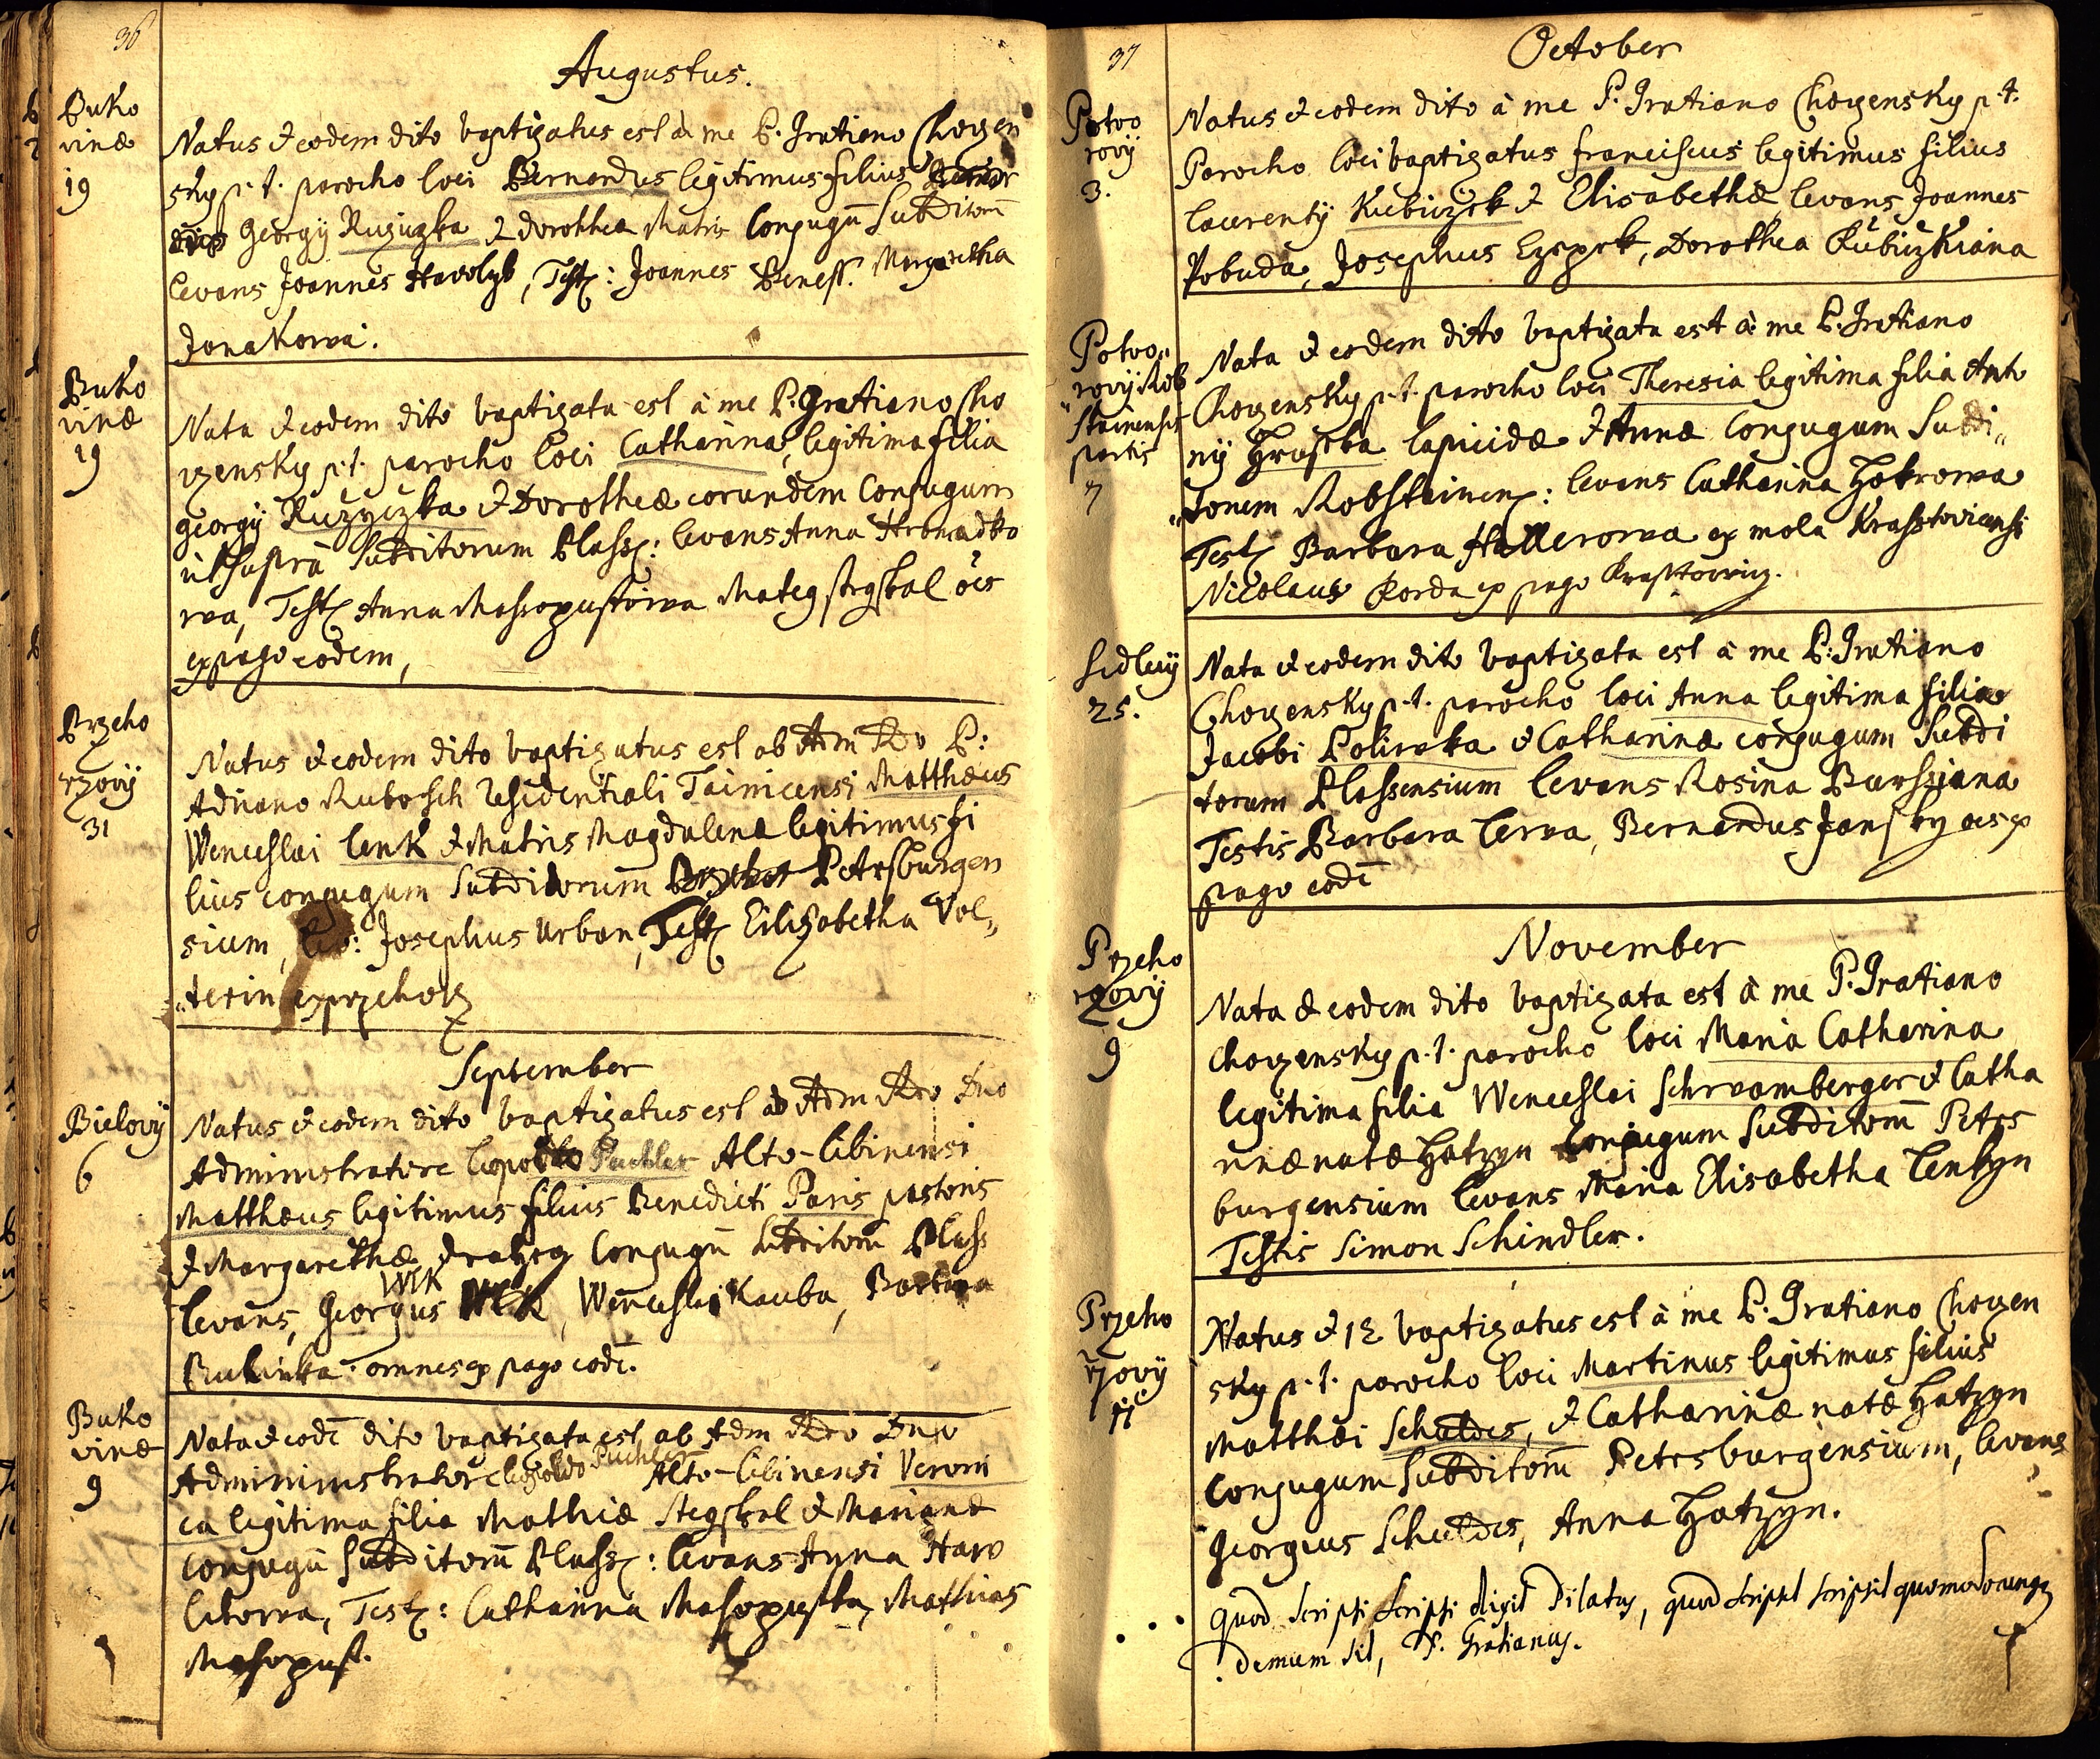 36
Augustus.
Buko
vinæ
19
Natus & eodem dito baptizatus est à me P. Gratiano Chozen
sky p. t. parocho loci Bernardus legitimus filius
Georgÿ Ruziczka & Dorothea Matris Conjugū Subditorū
levans Joannes Havolyk, Test: Joannes Beness. Margaretha
Janakowa.
Buko
vinæ
19
Nata & eodem dito baptizata est à me P. Gratiano Cho
zensky p. t. parocho loci Catharina, legitima filia
Georgÿ Ruzyczka & Dorotheæ eorundem Conjugum
ut supra Subditorum Plass: levans Anna Hromadko
wa, Test Anna Massopustowa Mateg strgskal oēs
ex pago eodem,
Przeho
rzovÿ
31
Natus & eodem dito baptizatus est ab Adm Rdo P:
Adriano Rubosch residentiali Teinicensi Matthæus
Wenceslai Cenk & Matris Magdalenæ legitimus fi
lius conjugum Subditorum Petersburgen
sium, lev: Josephus Urban, Test Eilizabetha Vol„
„terin ex przehorz
September
Bielovÿ
6
Natus & eodem dito baptizatus est ab Adm Rdo Dno
Administratore Leopoldo Puchler Alto-Libinensi
Matthæus legitimus filius Benedicti Paris pastoris
& Margarethæ Conjugū Subditorū Plass
Wlk
levans, Georgius Wlk, Wenceslai Kauba, Barbara
Rubinka omnes ex pago eodē.
Buko
vinæ
9
Nata & eodē dito baptizata est ab Adm Rdo Dno
Administratore Leopoldo Puchler Alto-Libinensi Veroni
ca legitima filia Mathiæ Stegskal & Marianæ
Conjugū Subditorū Plass: levans Anna Haw
likowa, Test: Catharina Masopustka, Mathias
Masopust.
37
October
Potwo
rovÿ
3.
Natus & eodem dito à me P. Gratiano Chozensky p. t.
Parocho loci baptizatus franciscus legitimus filius
laurentÿ Kubiczek & Elisabethæ levans Joannes
Pobuda, Josephus Ezepek, Dorothea Kubiczkiana
Potvo„
rovÿ Rob
„stainensis
partis
7
Nata & eodem dito baptizata est à me P. Gratiano
Chozensky p. t. parocho loci Theresia legitima filia Anto
nÿ Hruska lapicidæ & Annæ Conjugum Subdi„
„torum Robstainen: levans Catharina Hokrowa
Test Barbara Hallerowa ex mola Krasstoviensi
Nicolaus Korda ex pago Krasstowicz.
Sedlecÿ
25.
Nata & eodem dito baptizata est à me P. Gratiano
Chozensky p. t. parocho loci Anna legitima filia
Jacobi Poliwka & Catharinæ conjugum Subdi
torum Plassensium levans Rosina Burssiana
Testis Barbara Cerva, Bernardus Jansky oēs ex
pago eodē
November
Przeho
rzovÿ
9
Nata & eodem dito baptizata est à me P. Gratiano
Chozensky p. t. parocho loci Maria Catharina
legitima filia Wenceslai Schwamberger & Catha
rinæ natæ Hatzyn Conjugum Subditorū Peters
burgensium levans Maria Elisabetha Cenkyn
Testis Simon Schindler.
Przeho
rzovÿ
11
Natus & 12 baptizatus est à me P. Gratiano Chozen
sky p. t. parocho loci Martinus legitimus filius
Matthæi Schuldes, & Catharinæ natæ Hatzyn
Conjugum Subditorū Petersburgensium, levans
Georgius Schuldes, Anna Hatzyn.
Quod scripsi scripsi dixit Pilatus, quod scripsit scripsit quomodocunque
demum sit, P. Gratianus.